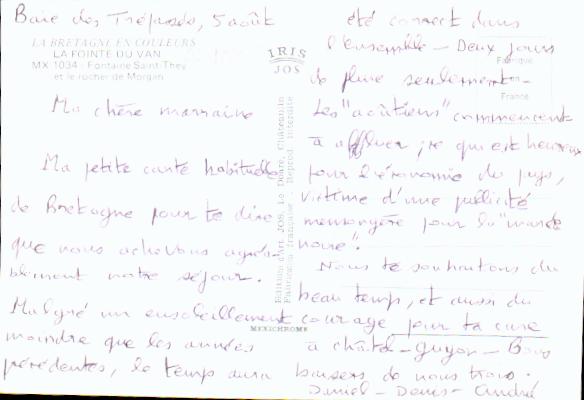 Baie des Trépassés, 5 août
LA BRETAGNE EN COULEURS
LA POINTE DU VAN
MX 1034 - Fontaine Saint-They
et le rocher de Morgan
IRIS
JOS
Ma chère marraine
Ma petite carte habituelle
de Bretagne pour te dire
que nous achevons agréa-
blement notre séjour.
Malgré un ensoleillement
moindre que les années
précédentes, le temps aura
Editions d'Art JOS, Le Doaré, Châteaulin
Fabrication française - Reprod. interdite
MEXICHROME
Fabriqué
en
France
été correct dans
l'ensemble - Deux jours
de pluie seulement -
Les "aoûtiens" commencent
à affluer, ce qui est heureux
pour l'économie du pays,
victime d'une publicité
mensongère pour la "marée
noire".
Nous te souhaitons du
beau temps, et aussi du
courage pour ta cure
à Châtel-Guyon - Bons
baisers de nous trois.
Daniel - Denis - André